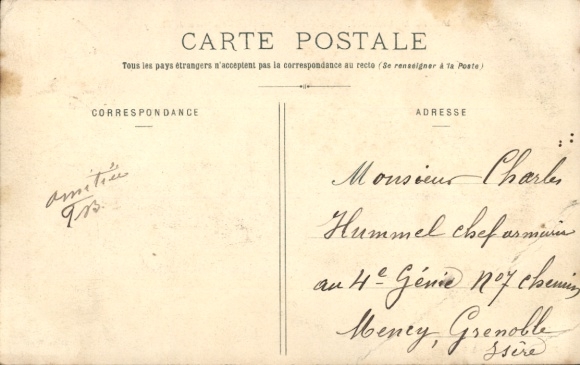 CARTE POSTALE
Tous les pays étrangers n'acceptent pas la correspondance au recto (Se renseigner à la Poste)
CORRESPONDANCE
ADRESSE
amitiés
Monsieur Charles
Hummel chef armurier
au 4e Génie No 7 chemin
Mency, Grenoble
Isère